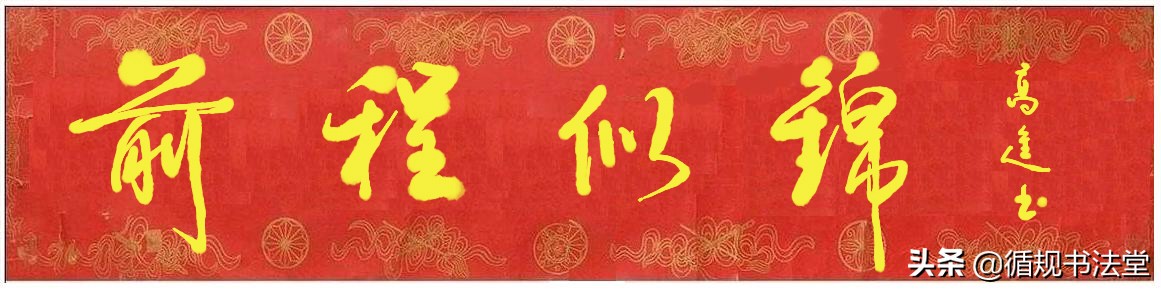 前程似锦
高進书
头条 @循规书法堂